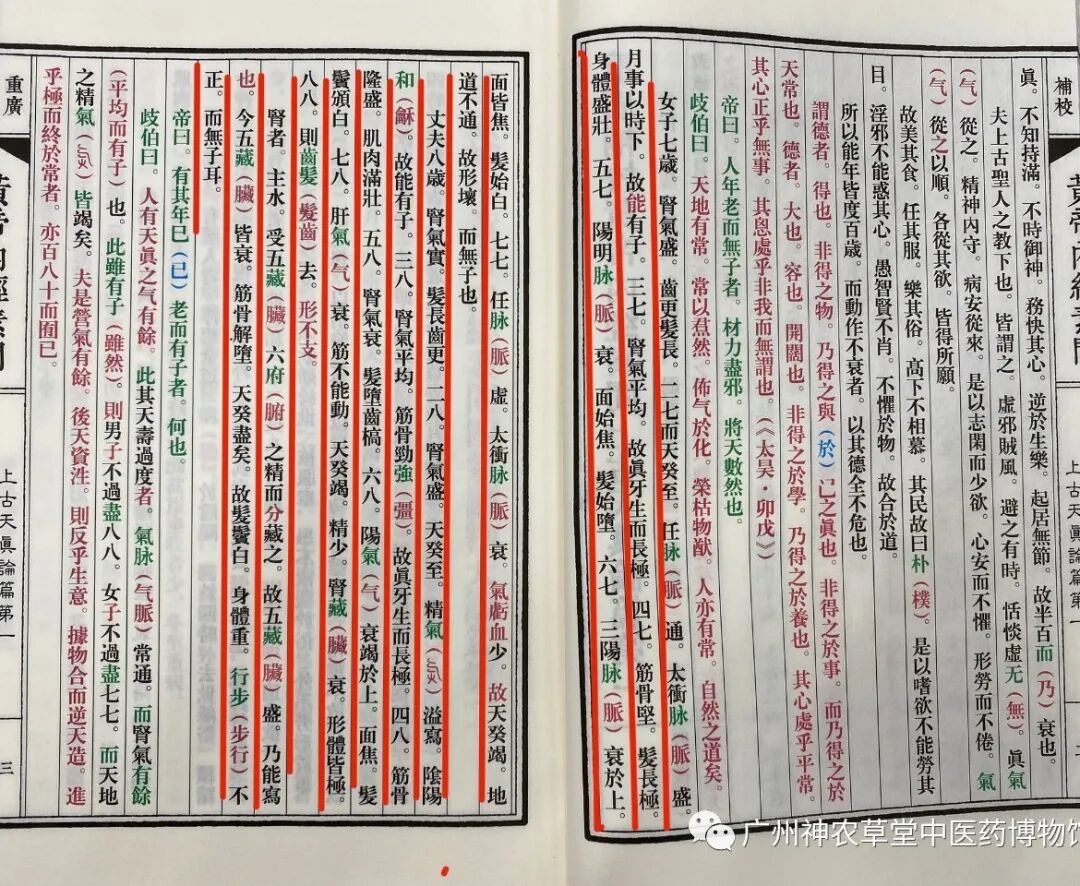 補校
黃帝內經素問
上古天眞論篇第一
二
眞。不知持滿。不時御神。務快其心。逆於生樂。起居無節。故半百而（乃）衰也。
夫上古聖人之教下也。皆謂之。虛邪賊風。避之有時。恬惔虛无（無）。眞氣
（气）從之。精神內守。病安從來。是以志閑而少欲。心安而不懼。形勞而不倦。氣
（气）從之以順。各從其欲。皆得所願。
故美其食。任其服。樂其俗。高下不相慕。其民故曰朴（樸）。是以嗜欲不能勞其
目。淫邪不能惑其心。愚智賢不肖。不懼於物。故合於道。
所以能年皆度百歲。而動作不衰者。以其德全不危也。
謂德者。得也。非得之物。乃得之與（於）之眞也。非得之於事。而乃得之於
天常也。德者。大也。容也。開闊也。非得之於學。乃得之於養也。其心處乎平常。
其心正乎無事。其息處乎非我而無謂也。（《太昊·卯戊》）
帝曰。人年老而無子者。材力盡邪。將天數然也。
歧伯曰。天地有常。常以焄然。佈气於化。榮枯物猷。人亦有常。自然之道矣。
女子七歲。腎氣盛。齒更髮長。二七而天癸至。任脉（脈）通。太衝脉（脈）盛。
月事以時下。故能有子。三七。腎氣平均。故眞牙生而長極。四七。筋骨堅。髮長極。
身體盛壯。五七。陽明脉（脈）衰。面始焦。髮始墮。六七。三陽脉（脈）衰於上。
面皆焦。髮始白。七七。任脉（脈）虛。太衝脉（脈）衰。氣虧血少。故天癸竭。地
道不通。故形壞。而無子也。
丈夫八歲。腎氣實。髮長齒更。二八。腎氣盛。天癸至。精氣溢寫。陰陽
和（龢）。故能有子。三八。腎氣平均。筋骨勁強（彊）。故眞牙生而長極。四八。筋骨
隆盛。肌肉滿壯。五八。腎氣衰。髮墮齒槁。六八。陽氣（气）衰竭於上。面焦。髮
鬢頒白。七八。肝氣（气）衰。筋不能動。天癸竭。精少。腎藏（臟）衰。形體皆極。
八八。則齒髮（髮齒）去。形不支。
腎者。主水。受五藏（臟）六府（腑）之精而分藏之。故五藏（臟）盛。乃能寫
也。今五藏（臟）皆衰。筋骨解墮。天癸盡矣。故髮鬢白。身體重。行步（步行）不
正。而無子耳。
帝曰。有其年已（已）老而有子者。何也。
歧伯曰。人有天眞之气有餘。此其天壽過度者。氣脉（气脈）常通。而腎氣有餘
（平均而有子）也。此雖有子（雖然）。則男子不過盡八八。女子不過盡七七。而天地
之精氣皆竭矣。夫是營氣有餘。後天資泩。則反乎生意。據物合而逆天造。進
乎極而終於常者。亦百八十而囿已。
重廣
黃帝內經素問
上古天眞論篇第一
三
广州神农草堂中医药博物馆